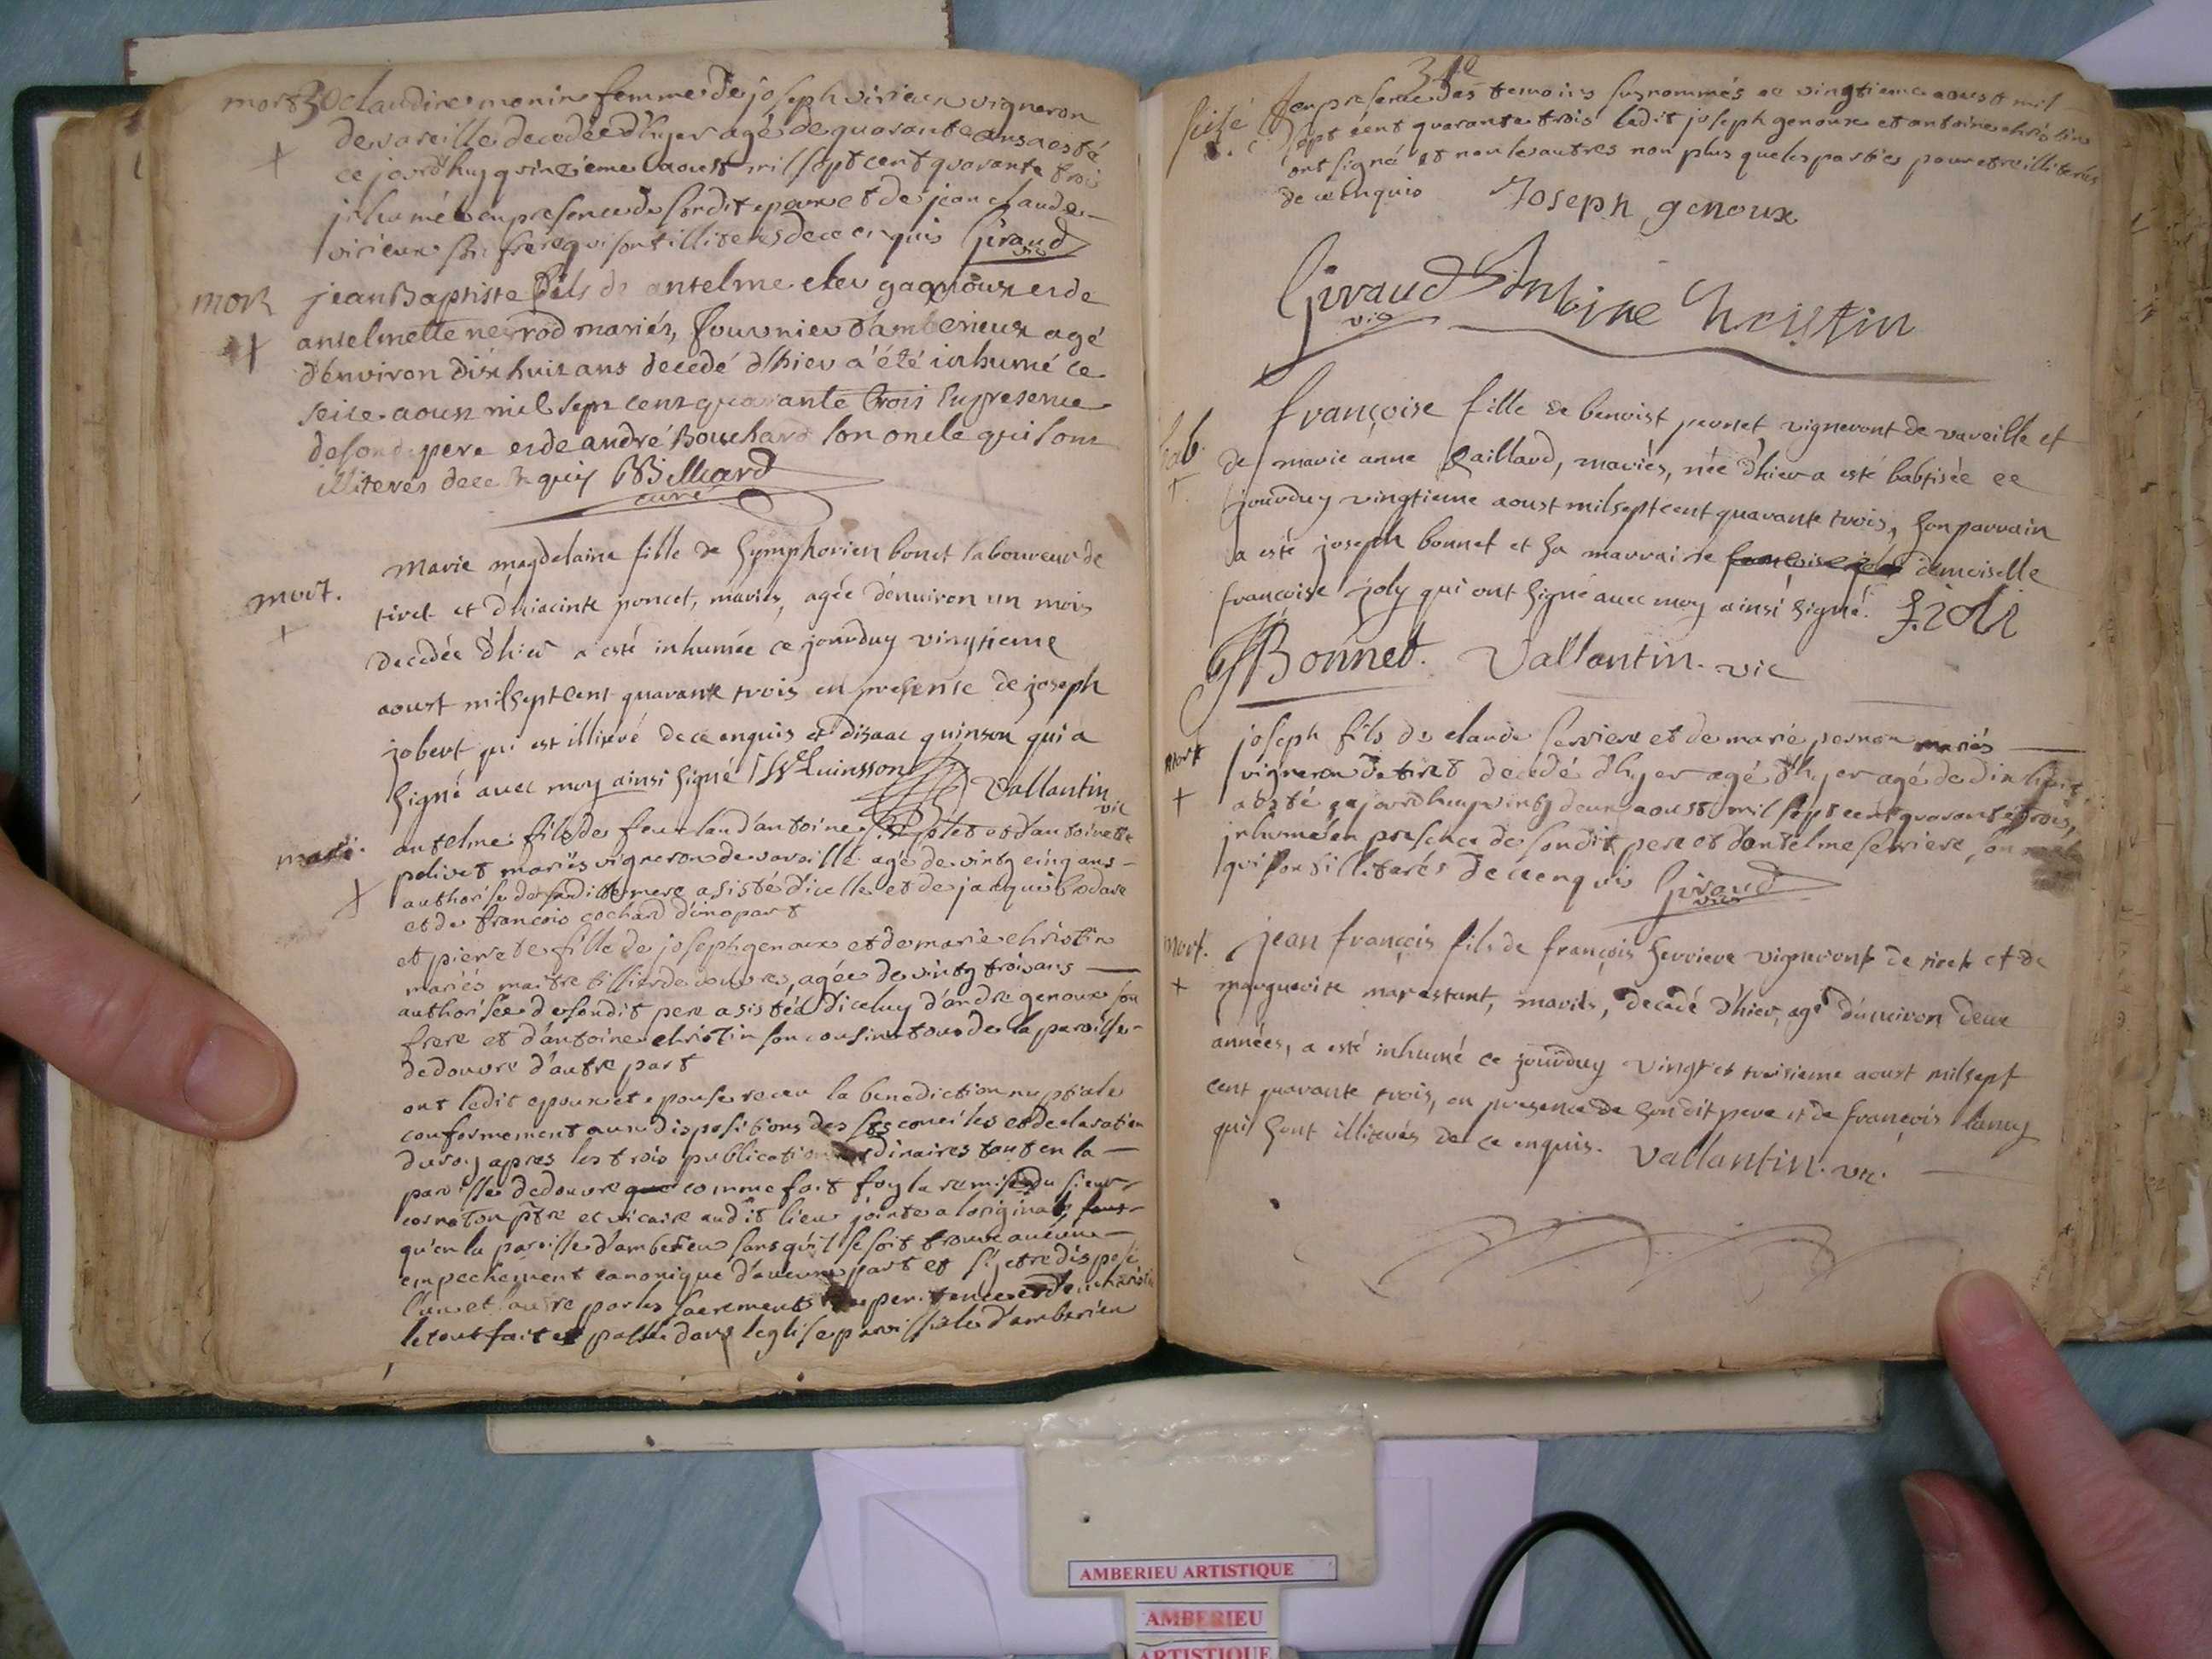 mort 30 claudine monin femme de joseph virieux vigneron
de vareille decedée d'hyer agé de quarante ans a esté
ce jourd'huy quinzieme aoust mil sept cent quarante trois
inhumée en presence de sondit epoux et de jean claude
virieux son frere qui sont illiterés de ce enquis Giraud
vic
mort jean Baptiste fils de antelme eleu gagnoux et de
antelmette nerrod mariés, fournier d'amberieux agé
d'environ dix huit ans decedé d'hier a été inhumé ce
seize aoust mil sept cent quarante trois En presence
de sond. pere et de andré Bouchard son oncle qui sont
illiterés de ce Enquis Billiard
curé
mort. Marie magdelaine fille de Symphorien bonet laboureur de
tiret et d'hiacinte poncet, mariés, agée d'enuiron un mois
decedée d'hier a esté inhumée ce jourduy vingtieme
aoust milseptcent quarante trois en presence de joseph
jobert qui est illiteré de ce enquis et d'isaac quinson qui a
signé auec moy ainsi signé Quinsson Vallantin
vic
antelme fils de feu claud'antoine et d'antoinette
polivet mariés vigneron de vareille agé de vintg cinq ans
authorisé de sadite mere asisté d'icelle et de jacques
et de francois cochard d'une part
et pierrete fille de joseph genoux et de marie christin
mariés maitre tillier de douvres, agée de vintg trois ans
authorisée de sondit pere asistéé d'iceluy d'andre genoux son
frere et d'antoine christin son cousin tous de la paroisse
de douvre d'autre part
ont ledit epoux et epouse receu la benediction nuptiale
conformement aux dispositions des sts conciles et declaration
du roy apres les trois publications ordinaires tant en la
paroisse de douvre que comme fait foy la remise du sieur
cornaton ptre et vicaire audit lieu jointe a loriginal,
qu'en la paroisse d'amberieu sans qu'il se soit trouvé aucune
empechement canonique d'aucune part et s'y etre disposé
l'un et l'autre par les sacrements de penitence et d'eucharistie
le tout fait et passé dans leglise paroissiale d'amberieu
en presence des temoins susnommés ce vingtieme aoust mil
sept cent quarante trois ledit joseph genoux et antoine christin
ont signé et non les autres non plus que les parties pour etre illiterés
de ce enquis Joseph genoux
Giraud Antoine Christin
vic
françoise fille de benoist peronet, vigneront de vareille et
bab. de marie anne Gaillard, mariés, née d'hier a esté babtisée ce
jourduy vingtieme aoust milseptcent quarante trois, son parrain
a esté joseph bonnet et sa marraine demoiselle
francoise joly qui ont signé auec moy ainsi signé. F. joli
Bonnet. Vallantin. vic
mort joseph fils de claude serviere et de marie mariés
vigneron de tiret decedé d'hyer agé d'hyer agé de dix huit
a esté cejourdhuy vintg deux aoust mil sept cent quarante trois,
inhumé en presence de sondit pere et d'antelme serriere, son
qui sont illiterés de ce enquis Giraud
vic
mort. jean françois fils de françois serriere vigneront de tiret et de
marguerite marestant, mariés, decedé d'hier, agé d'enuiron deux
années, a esté inhumé ce jourduy vingt et troisieme aoust milsept
cent quarante trois, en presence de sondit pere et de françois lamy
qui sont illiterés de ce enquis. Vallantin. vic.
AMBERIEU ARTISTIQUE
AMBERIEU
ARTISTIQUE